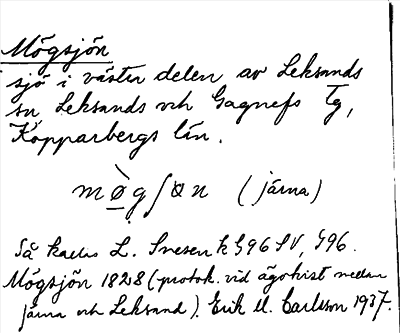 Mögsjön
sjö i västra delen av Leksands
sn, Leksands och Gagnefs tg,
Kopparbergs län.
(järna)
Så kallas L. Snesen k S96 SV, S96.
Mögsjön 1828 (protok. vid ägohist mellan
järna och Leksand). Erik O. Carlsson 1937.